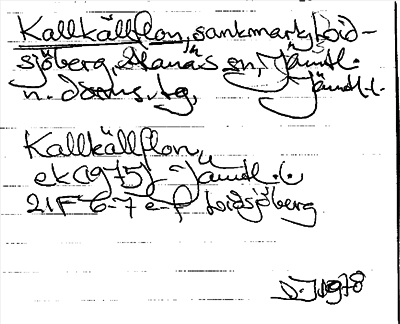 Kallkällflon, sankmark, Loid-
sjöberg, Alanäs sn, Jämtl.
n. doms., Jämtl. l.
Kallkällflon,
ek (1975) Jämtl. l.
21F 6-7 e-f Loidsjöberg
1978